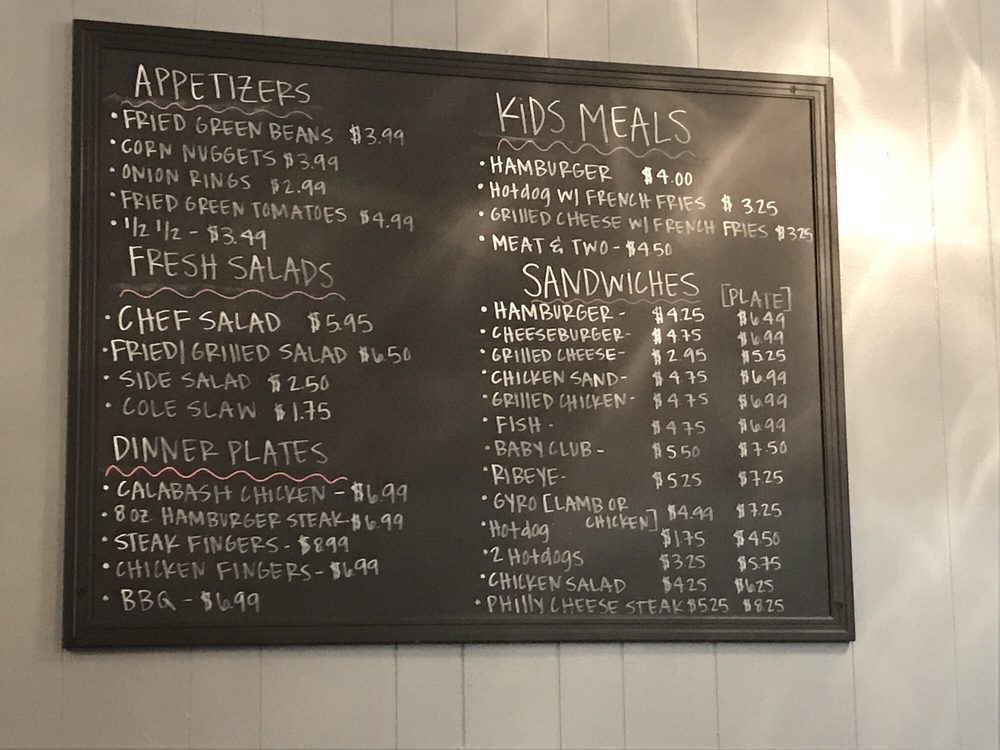 APPETIZERS
• FRIED GREEN BEANS $3.99
• CORN NUGGETS $3.99
• ONION RINGS $2.99
• FRIED GREEN TOMATOES $4.99
• 1/2 1/2 - $3.49
FRESH SALADS
• CHEF SALAD $5.95
• FRIED/GRIllED SALAD $6.50
• SIDE SALAD $2.50
• COLE SLAW $1.75
DINNER PLATES
• CALABASH CHICKEN - $6.99
• 8 OZ HAMBURGER STEAK - $6.99
• STEAK FINGERS - $8.99
• CHICKEN FINGERS - $6.99
• BBQ - $6.99
KiDS MEALS
• HAMBURGER $4.00
• Hotdog W/ FRENCH FRIES $3.25
• GRIllED CHEESE W/ FRENCH FRIES $3.25
• MEAT & TWO - $4.50
SANDWICHES [PLATE]
• HAMBURGER - $4.25 $6.49
• CHEESEBURGER - $4.75 $6.99
• GRIllED CHEESE - $2.95 $5.25
• CHICKEN SAND - $4.75 $6.99
• GRIllED CHICKEN - $4.75 $6.99
• FISH - $4.75 $6.99
• BABY CLUB - $5.50 $7.50
• RIBEYE - $5.25 $7.25
• GYRO [LAMB OR
CHICKEN] $4.99 $7.25
• Hotdog $1.75 $4.50
• 2 Hotdogs $3.25 $5.75
• CHICKEN SALAD $4.25 $6.25
• PHIllY CHEESE STEAK $5.25 $8.25